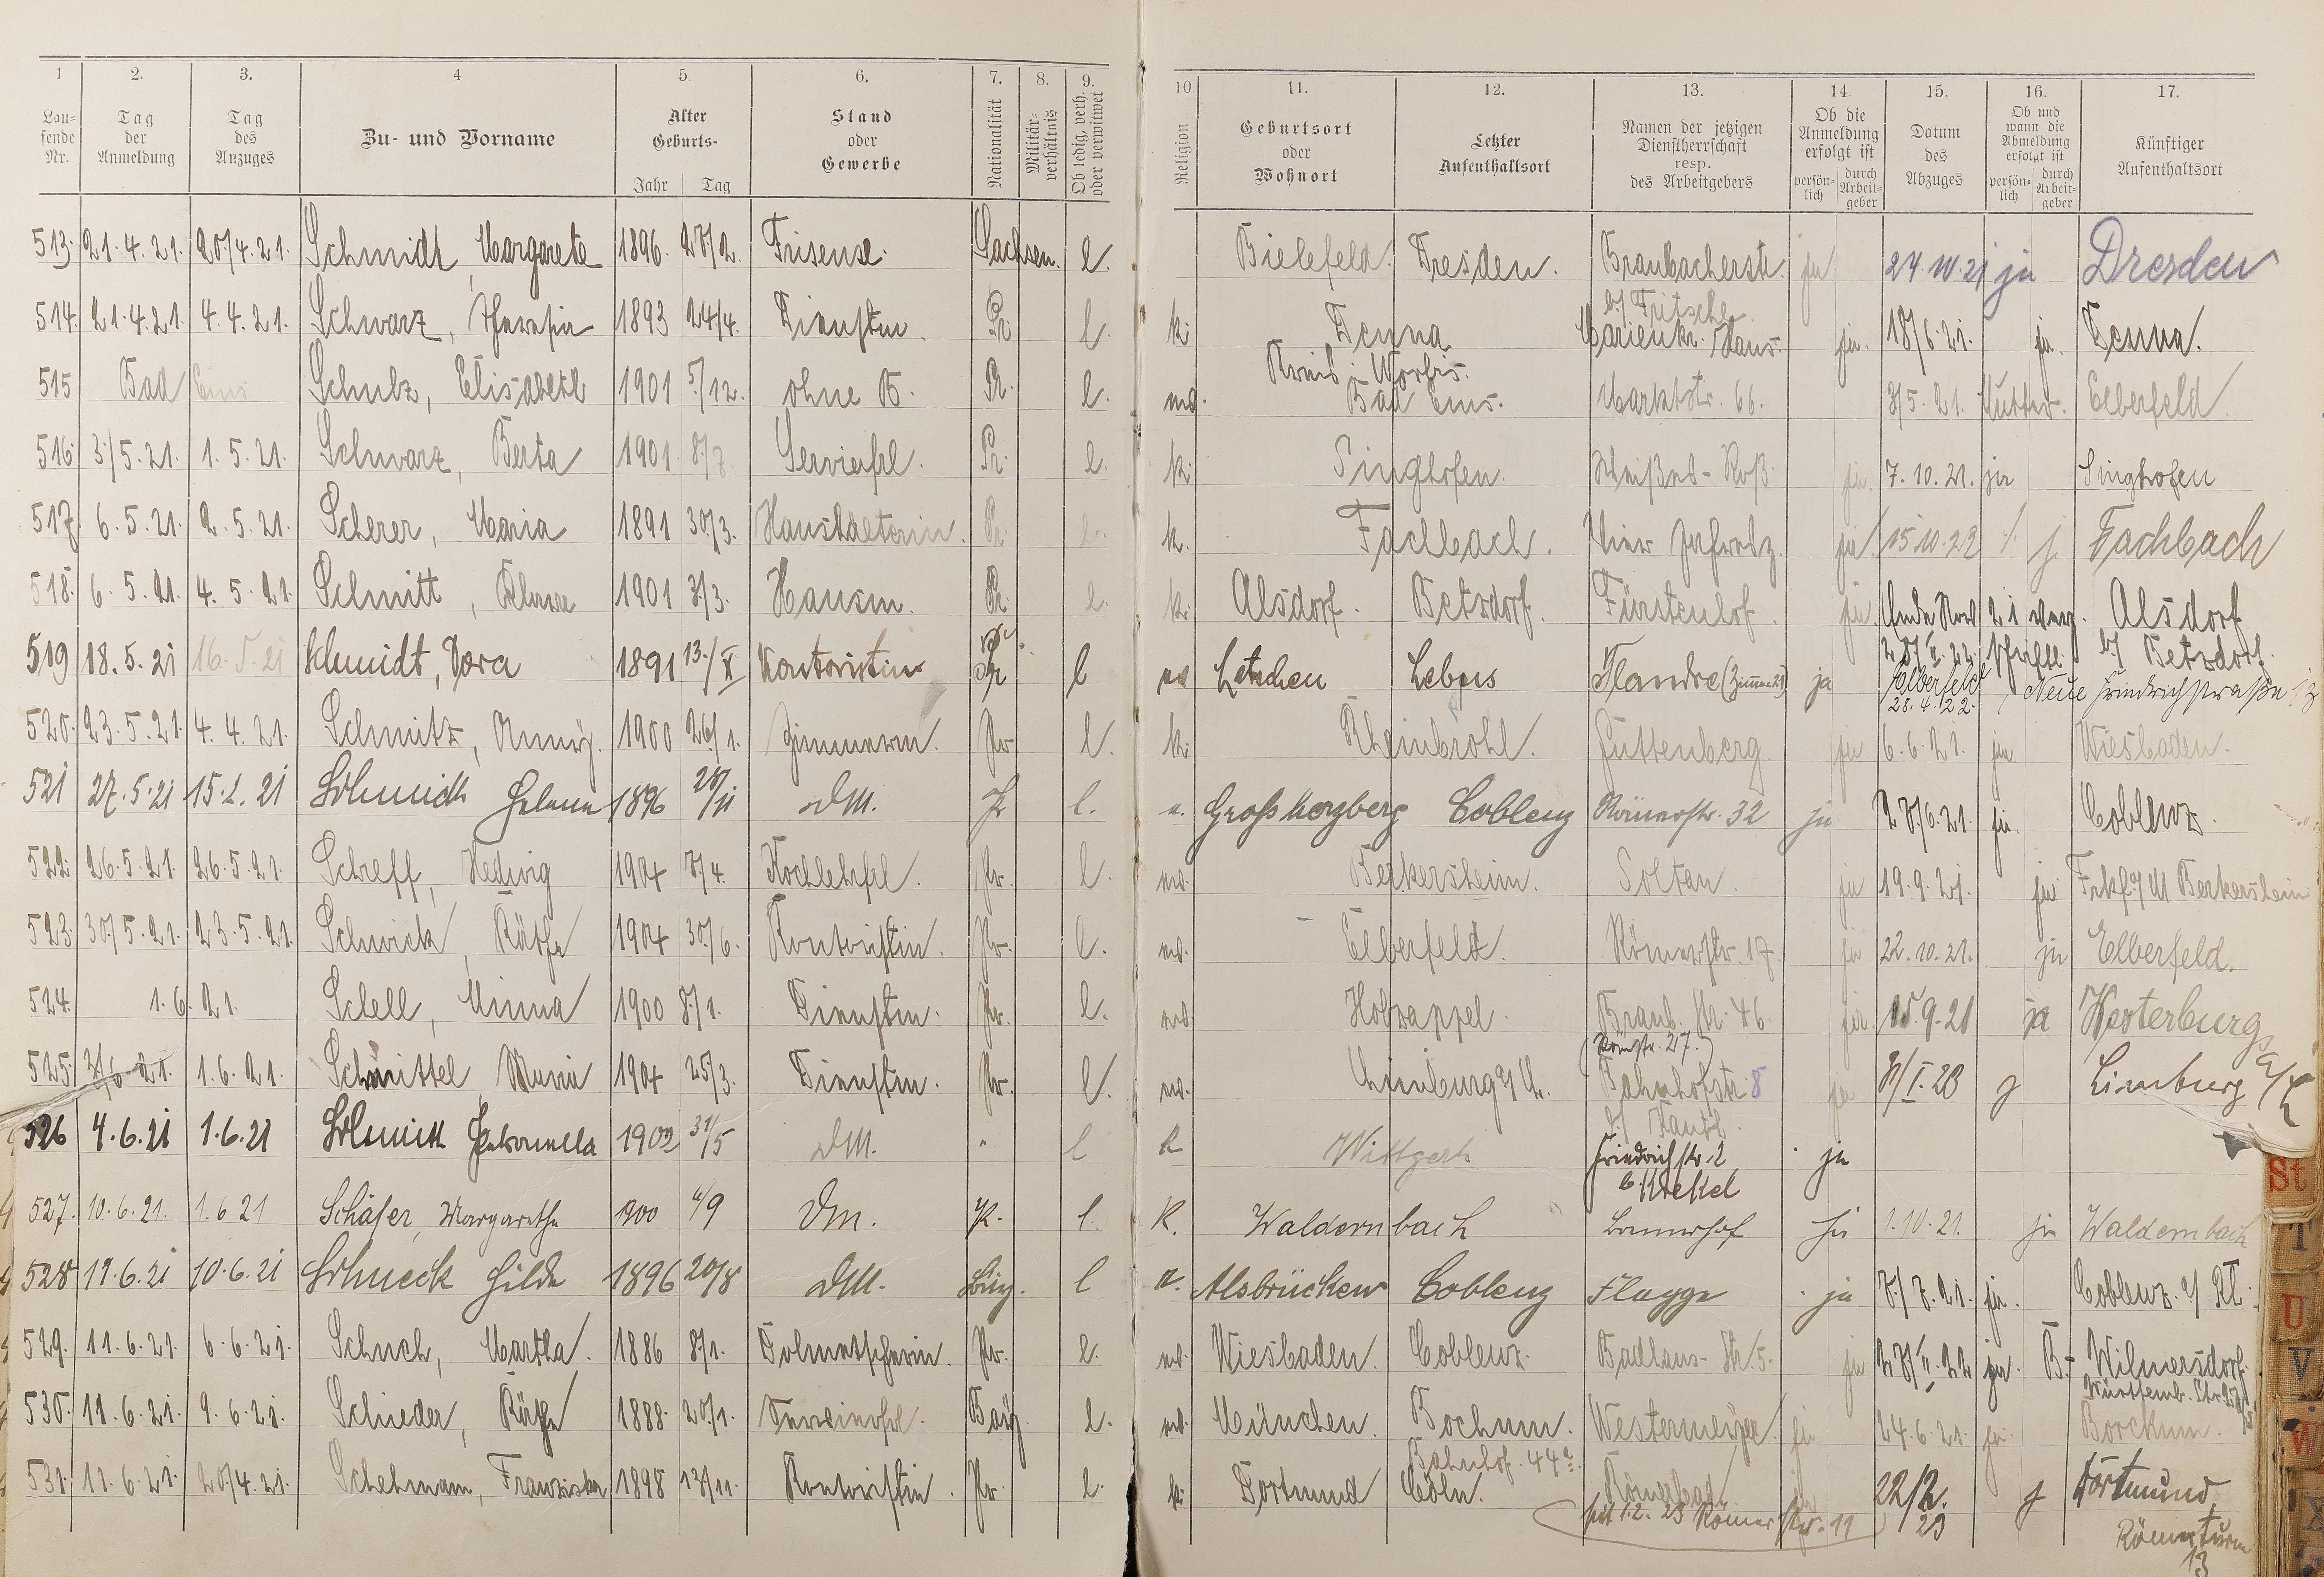 1 2. 3. 4 5. 6. 7. 8. 9. 10 11. 12. 13. 14. 15. 16. 17.
Lau-fende Nr. Tag der Anmeldung Tag des Anzuges Zu- und Vorname Alter Geburts- Jahr Tag Stand oder Gewerbe Nationalität Militär-verhältnis Ob ledig, verh. oder verwitwet Religion Geburtsort oder Wohnort Letzter Aufenthaltsort Namen der jetzigen Dienstherrschaft resp. des Arbeitgebers Ob die Anmeldung erfolgt ist persön-lich durch Arbeit-geber Datum des Abzuges Ob und wann die Abmeldung erfolgt ist persön-lich durch Arbeit-geber Künftiger Aufenthaltsort
513. 21.4.21. 20/4.21. Schmidt, Margarete 1896. 27/2. Friseuse. Sachsen. l. Bielefeld. Dresden. Braubacherstr. ja 24.10.21 ja Dresden
b/ Fritsche
514. 21.4.21. 4.4.21. Schwarz, Theresia 1893 24/4. Dienstm. Pr. l. k. Tenna Marienkr. Haus. ja. 18/6.21. ja. Tenna.
Kreis Worbis.
515 Bad Ems Schulz, Elisabeth 1901 5/12. ohne B. Pr. l. Bad Ems. Marktstr. 66. 3/5.21. Mutter. Elberfeld.
516. 3/5.21. 1.5.21. Schwarz, Berta 1901 8/7. Servierfrl. Pr. l. k. Singhofen. Weißes-Roß. ja. 7.10.21. ja Singhofen
517. 6.5.21. 2.5.21. Scherer, Maria 1891 30/3. Haushälterin. Pr. l. k. Fachbach. ja. 15.10.22 j Fachbach
518. 6.5.21. 4.5.21. Schmitt, 1901 3/3. Hausm. Pr. l. k. Alsdorf. Betzdorf. Fürstenhof. ja. Ende Nov. 21 Alsdorf
b/ Betzdorf.
519 18.5.21 16.5.21 Schmidt, Dora 1891 13./X Kontoristin Pr l Letschen Lebus Flandre (Zimmer 29) ja Elberfeld Neue Friedrichstraße 13
28.4.22.
520. 23.5.21. 4.4.21. Schmitz, Anny. 1900 26/1. Zimmerm. Pr l. k. Rheinbrohl. Guttenberg. ja 6.6.21. ja. Wiesbaden.
521 27.5.21 15.2.21 Schmidt Helene 1896 28/11 DM. Pr l. Coblenz Römerstr. 32 ja 28/6.21. ja. Coblenz.
522. 26.5.21. 26.5.21. Schreff, Hedwig 1904 8/4. Kochlehrfrl. Pr. l. Berkersheim. Soltau. ja 19.9.21. ja Frkf. a/M Berkersheim
523. 30/5.21. 23.5.21. Schwick, Käthe 1904 30/6. Kontoristin. Pr. l. Elberfeld. Römerstr. 17. ja 22.10.21. ja Elberfeld.
524. 1.6.21. Schell, Minna 1900 8/1. Dienstm. Pr. l. Holzappel. Braub. Str. 46. ja. 15.9.21 ja Westerburg
(Römstr. 27.)
525. 3/6.21. 1.6.21. Schmittel Maria 1904 25/3. Dienstm. Pr. l. Limburg a/L. Bahnhofstr. 8 ja 8/I.23 j Limburg a/L
526 4.6.21 1.6.21 Schmitt Petronella 1902 31/5 DM. " l k Wittgert Friedrichstr. 2 ja
b. Krekel
527. 10.6.21. 1.6.21 Schäfer, Margarethe 1900 4/9 Dm. Pr. l. K. Waldernbach ja 1.10.21. ja Waldernbach
528 11.6.21 10.6.21 Schneck Hilde 1896 20/8 DM. Bay. l Alsbrücken Coblenz Flagge ja 7/7.21. ja. Coblenz.
529. 11.6.21. 6.6.21. Schuch, Martha. 1886 8/1. Dolmetscherin. Pr. l. Wiesbaden. Coblenz. Badhaus-Str. 5. ja 28/II.22 ja. B.-Wilmersdorf.
530. 11.6.21. 9.6.21. Schieder, Käthe 1888. 20/1. Servierfrl. Bay. l. München. Bochum. Westermeyer ja 24.6.21. ja. Borckum.
Bahnhof. 44a.
531. 11.6.21. 20/4.21. Schelmann, Franziska 1898 13/11. Kontoristin. Pr. l. k. Dortmund Cöln. Römerbad ja 22/2. 23 j Dortmund,
seit 1.2.23 Römerstr. 11
Römerturm
13
St
T
U
V
W